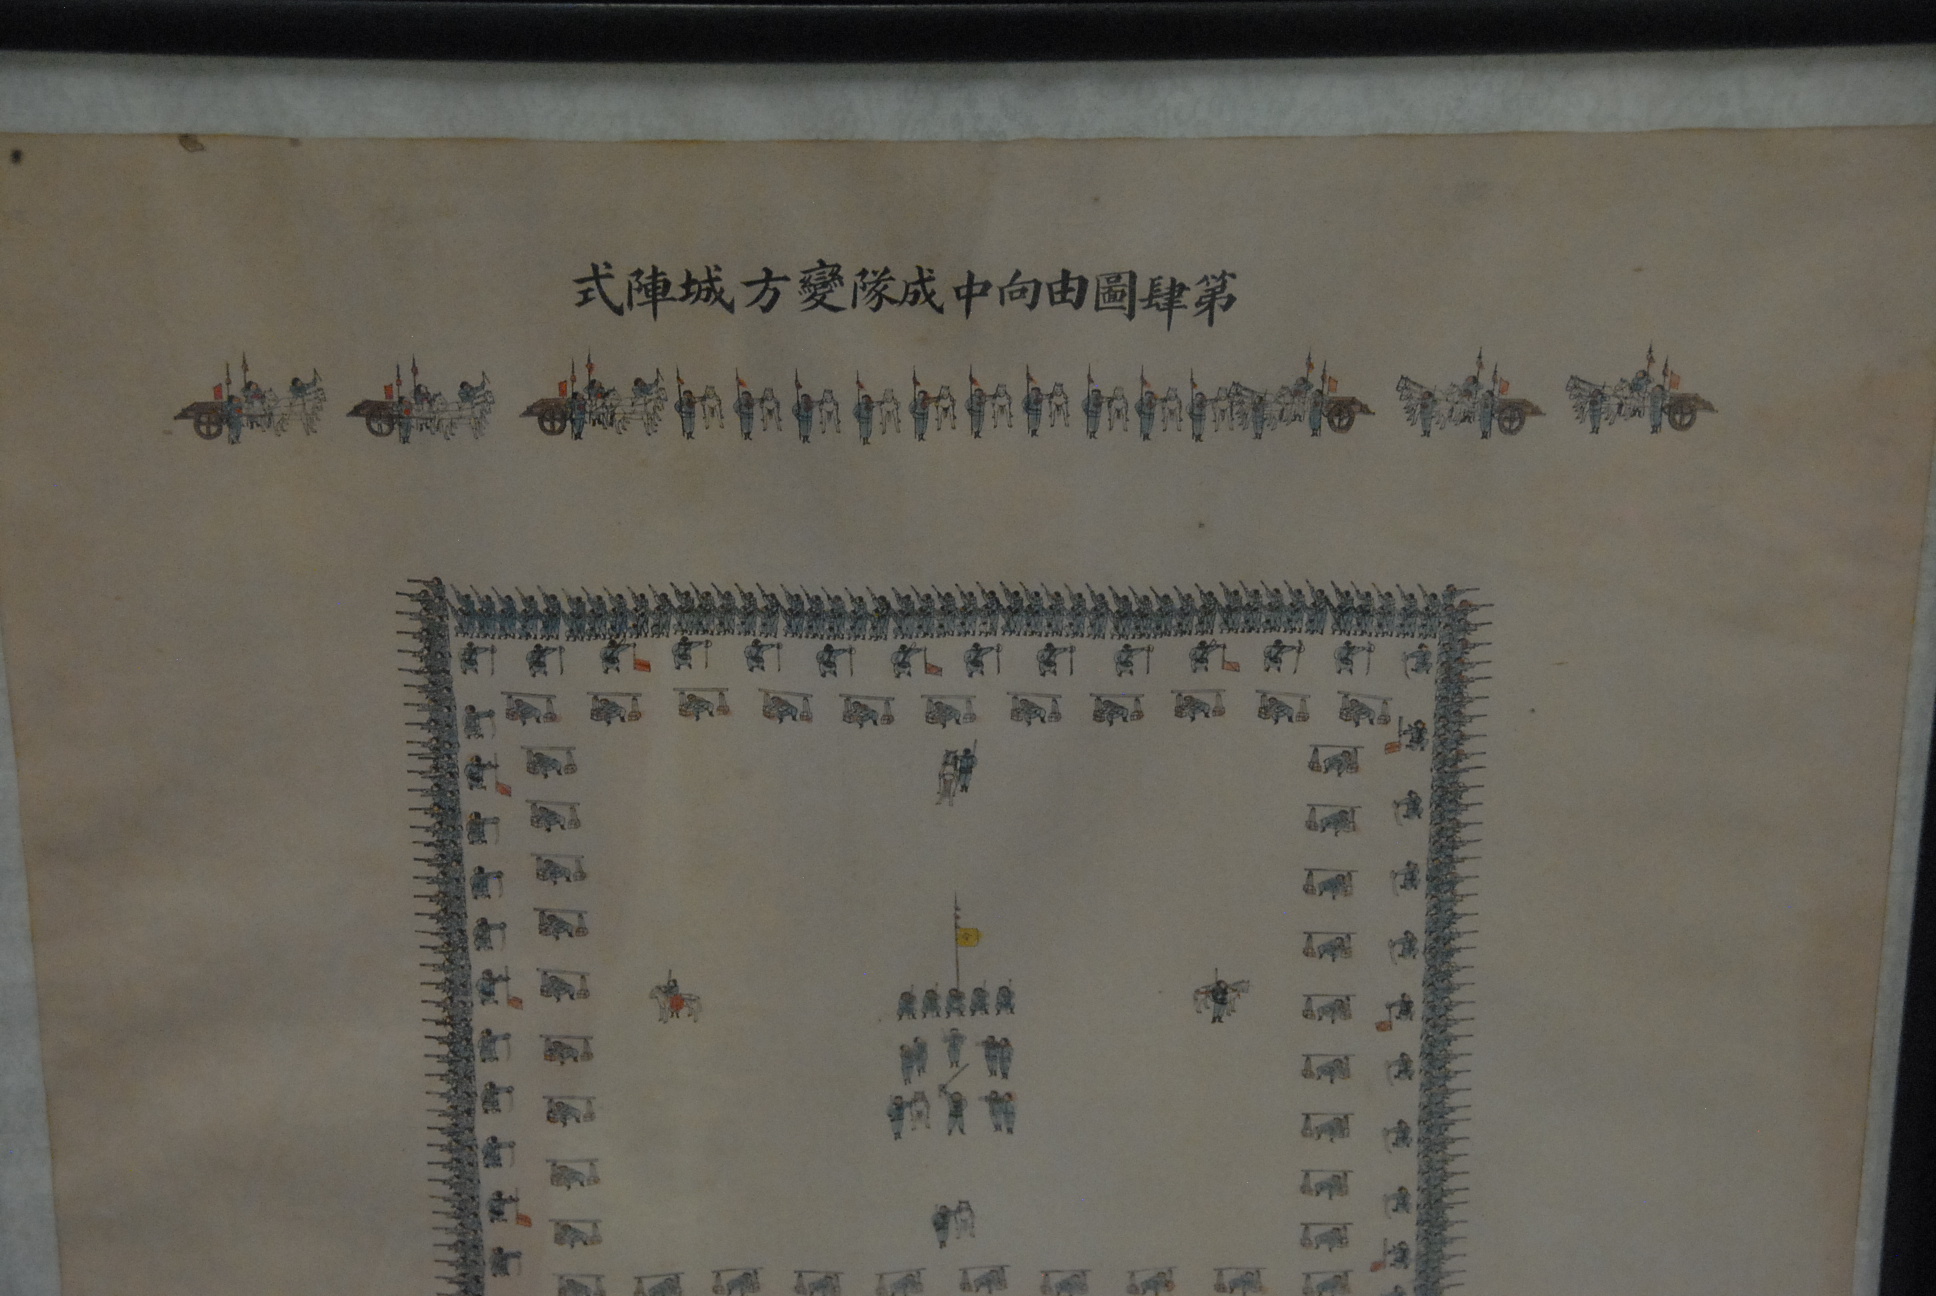 第肆圖由向中成隊變方城陣式